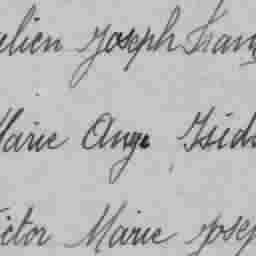 ulien Joseph Fran
Marie Ange Isid
ictor Marie Josep